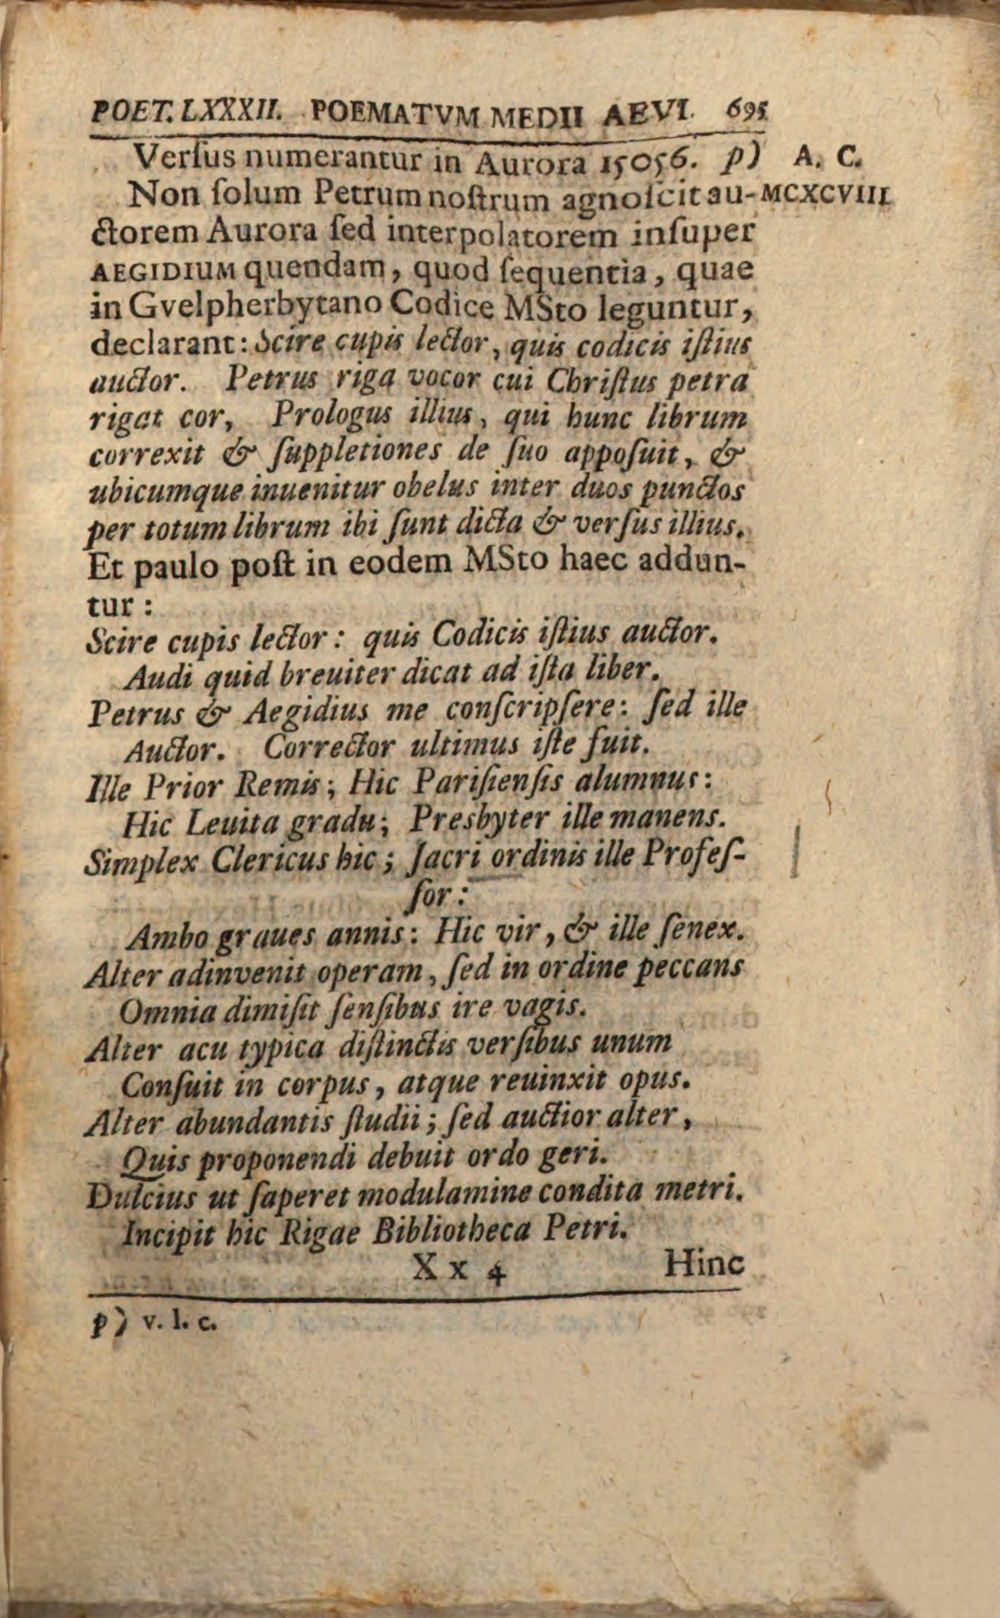 POET. LXXXII. POEMATVM MEDII AEVI. 695
Verſus numerantur in Aurora 15056. p) A. C.
Non ſolum Petrum noſtrum agnoſcit au- MCXCVIII.
ctorem Aurora ſed interpolatorem inſuper
AEGIDIUM quendam, quod ſequentia, quae
in Gvelpherbytano Codice MSto leguntur,
declarant: Scire cupis lector, quis codicis iſtius
auctor. Petrus riga vocor cui Chriſtus petra
rigat cor, Prologus illius, qui hunc librum
correxit & ſuppletiones de ſuo appoſuit, &
ubicumque inuenitur obelus inter duos punctos
per totum librum ibi ſunt dicta & verſus illius.
Et paulo poſt in eodem MSto haec addun-
tur:
Scire cupis lector: quis Codicis iſtius auctor.
Audi quid breuiter dicat ad iſta liber.
Petrus & Aegidius me conſcripſere: ſed ille
Auctor. Corrector ultimus iſte fuit.
Ille Prior Remis; Hic Pariſienſis alumnus:
Hic Leuita gradu; Presbyter ille manens.
Simplex Clericus hic; ſacri ordinis ille Profeſ-
ſor:
Ambo graues annis: Hic vir, & ille ſenex.
Alter adinvenit operam, ſed in ordine peccans
Omnia dimiſit ſenſibus ire vagis.
Alter acu typica diſtinctis verſibus unum
Conſuit in corpus, atque reuinxit opus.
Alter abundantis ſtudii; ſed auctior alter,
Quis proponendi debuit ordo geri.
Dulcius ut ſaperet modulamine condita metri.
Incipit hic Rigae Bibliotheca Petri.
X x 4 Hinc
p) v. l. c.